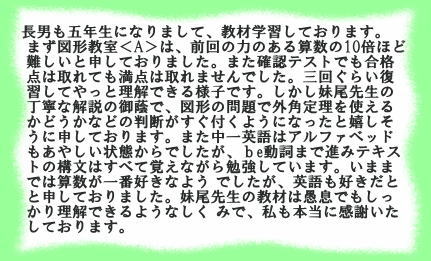 長男も五年生になりまして、教材学習しております。
まず図形教室＜A＞は、前回の力のある算数の10倍ほど
難しいと申しておりました。また確認テストでも合格
点は取れても満点は取れませんでした。三回ぐらい復
習してやっと理解できる様子です。しかし妹尾先生の
丁寧な解説の御蔭で、図形の問題で外角定理を使える
かどうかなどの判断がすぐ付くようになったと嬉しそ
うに申しております。また中一英語はアルファベッド
もあやしい状態からでしたが、be動詞まで進みテキス
トの構文はすべて覚えながら勉強しています。いまま
では算数が一番好きなよう でしたが、英語も好きだと
と申しておりました。妹尾先生の教材は愚息でもしっ
かり理解できるようなしく みで、私も本当に感謝いた
しております。